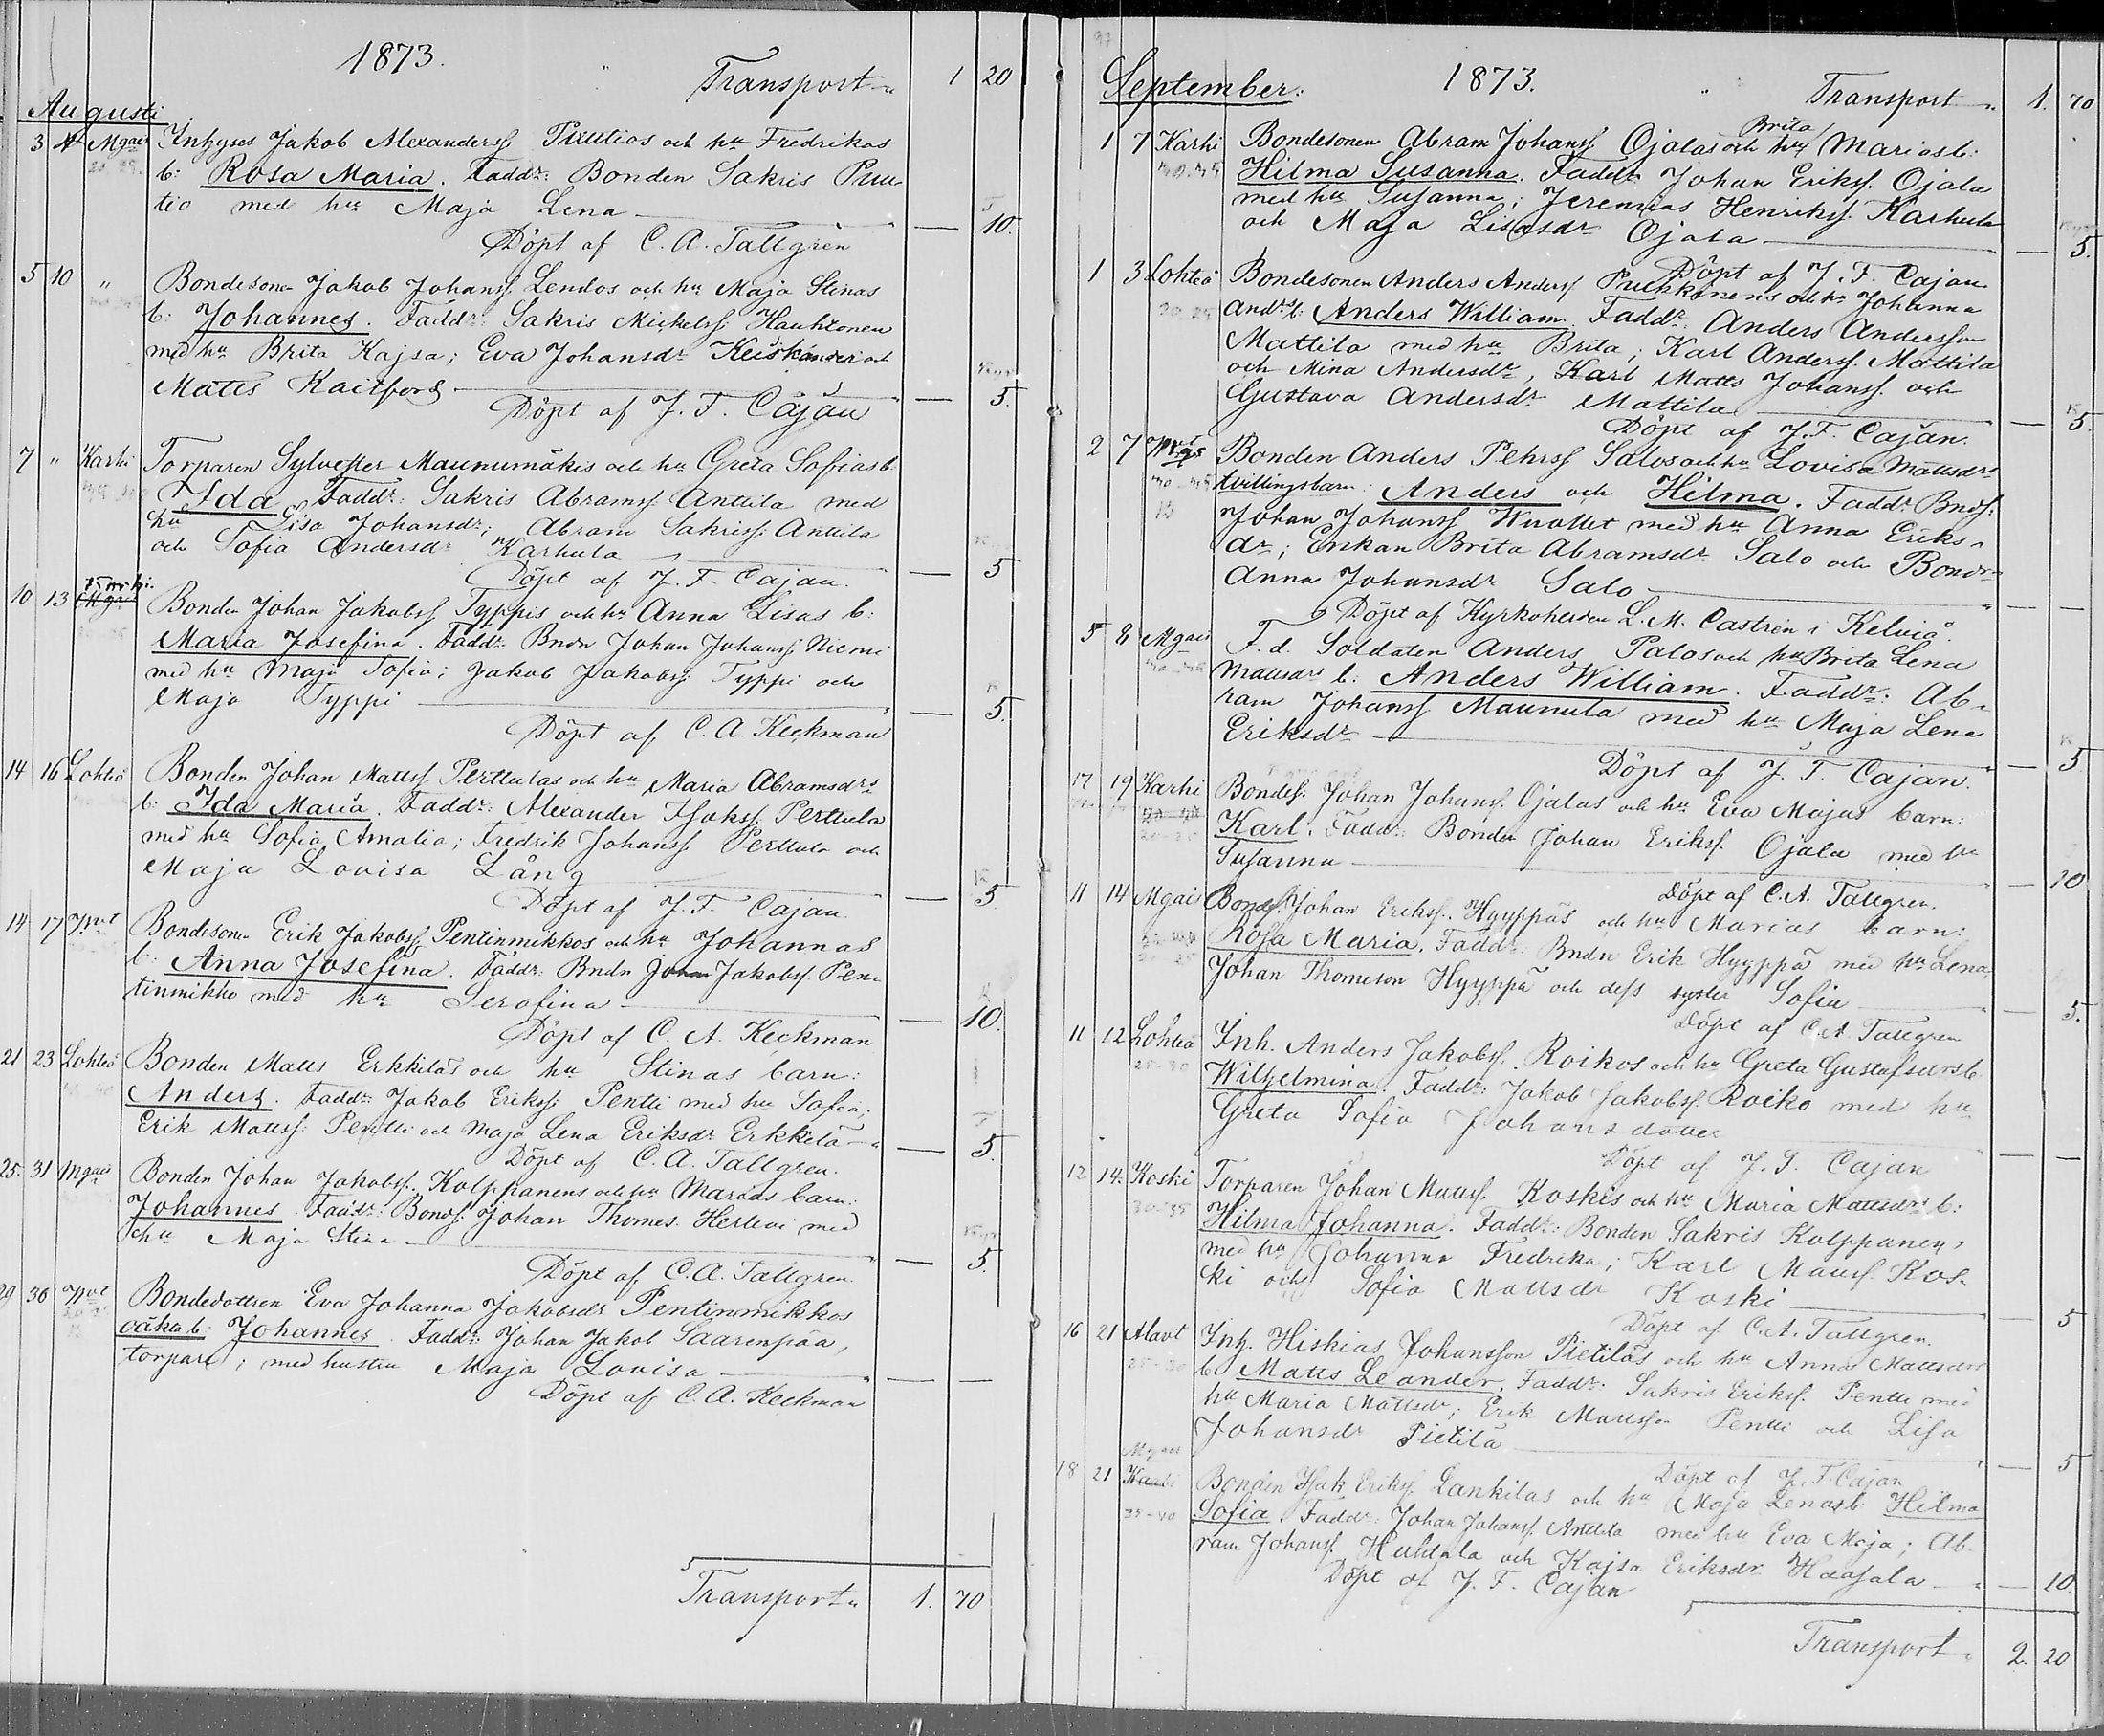 1873.
Transport 1 20
Augusti
3 4 Mgais Inhyses Jakob Alexanderss Puutios och hu Fredrikas
b: Rosa Maria. Faddr: Bonden Sakris Puu-
tio med hu Maja Lena — 10.
Döpt af C. A. Tallgren
5 10 " Bondeson Jakob Johanss. Lendos och hu Maja Stinas
b: Johannes. Faddr: Sakris Mickelss. Hauhtonen
med hu Brita Kajsa; Eva Johansdr och
Matts Kaitfors — 5.
Döpt af J. F. Cajan
7 " Karhi Torparen Sylvester Maunumäkis och hu Greta Sofias b.
Ida Faddr: Sakris Abramss. Anttila med
hu Lisa Johansdr; Abram Sakriss. Anttila
och Sofia Andersdr Karhula — 5
Döpt af J. F. Cajan.
Karhi
10 13 Mgais Bonden Johan Jakobss Typpis och hu Anna Lisas b:
Maria Josefina. Faddr: Bndn Johan Johanss. Niemi
med hu Maja Sofia; Jakob Jakobss. Typpi och
Maja Typpi — 5.
Döpt af C. A. Keckman
14 16 Lohteå Bonden Johan Mattss. Perttulas och hu Maria Abramsdrs
b: Ida Maria. Faddr: Alexander Isakss. Perttula
med hu Sofia Amalia; Fredrik Johanss. Perttula och
Maja Lovisa Lång — 5.
Döpt af J. F. Cajan.
14 17 Yvt Bondeson Erik Jakobss Pentinmikkos och hu Johannas
b: Anna Josefina. Faddr: Bndn Johan Jakobss. Pen-
tinmikko med hu Serafina — 10.
Döpt af C. A. Keckman
21 23 Lohteå Bonden Matts Erkkiläs och hu Stinas barn:
Anders. Faddr: Jakob Erikss. Pentti med hu Sofia;
Erik Mattss. Pentti och Maja Lena Eriksdr Erkkilä — 5.
Döpt af C. A. Tallgren.
25. 31 Mgais Bonden Johan Jakobss. Kolppanens och hu Marias barn:
Johannes. Faddr: Bonds. Johan Thomes. Herlevi med
hu Maja Stina — 5.
Döpt af C. A. Tallgren.
29 30 Yvt Bondedottren Eva Johanna Jakobsdr Pentinmikkos
oäkta b. Johannes. Faddr: Johan Jakob Saarenpää,
torpare; med hustru Maja Lovisa — —
Döpt af C. A. Keckman
Transport 1. 70
97
September. 1873. Transport 1. 70
Brita
1 7 Karhi Bondesonen Abram Johanss Ojalas och hu Marias b:
30-35 Hilma Susanna. Faddr: Johan Erikss. Ojala
med hu Susanna; Jeremias Henrikss. Karhula
och Maja Lisasdr Ojala — 5.
Döpt af J. F. Cajan
1 3 Lohteå Bondesonen Anders Anderss Pukkinens och hu Johanna
Andrs b: Anders William. Faddr: Anders Andersson
Mattila med hu Brita; Karl Anderss. Mattila
och Mina Andersdr, Karl Matts Johanss. och
Gustava Andersdr Mattila — 5.
Döpt af J. F. Cajan.
2 7 Bonden Anders Pehrss Salos och hu Lovisa Mattsdrs
tvillingbarn: Anders och Hilma. Faddr: Bnds:
Johan Johanss Wuollet med hu Anna Eriks-
dr; Enkan Brita Abramsdr Salo och Bondr
Anna Johansdr Salo — —
Döpt af Kyrkoherden L. M. Castrén i Kelviå.
5 8 Mgais F. d. Soldaten Anders Palos och hu Brita Lena
Mattsdrs b: Anders William. Faddr: Ab-
ram Johanss Maunula med hu Maja Lena
Eriksdr — 5
Döpt af J. F. Cajan.
17 19 Karhi Bondes. Johan Johanss. Ojalas och hu Eva Majas barn:
Karl. Faddr: Bonden Johan Erikss. Ojala med hu
Susanna — 10
Döpt af C. A. Tallgren.
11 14 Mgais Bondes. Johan Erikss. Hyyppäs och hu Marias barn:
Rosa Maria. Faddr: Bndn Erik Hyyppä med hu Lena;
Johan Thomeson Hyyppä och dess syster Sofia — 5.
Döpt af C. A. Tallgren
11 12 Lohteå Inh. Anders Jakobss. Roikos och hu Greta Gustafsdrs b.
25-30 Wilhelmina. Faddr: Jakob Jakobss. Roiko med hu
Greta Sofia Johansdotter — —
Döpt af J. F. Cajan
12 14. Koski Torparen Johan Mattss. Koskis och hu Maria Mattsdrs b:
30-35 Hilma Johanna. Faddr: Bonden Sakris Kolppanen,
med hu Johanna Fredrika; Karl Mattss. Kos-
ki och Sofia Mattsdr Koski — 5
Döpt af C. A. Tallgren.
16 21 Alavt Inh. Hiskias Johansson Pietiläs och hu Anna Mattsdrs
25-30 b. Matts Leander. Faddr: Sakris Erikss. Pentti med
hu Maria Mattsdr; Erik Mattsson Pentti och Lisa
Johansdr Pietilä — 5
Döpt af J. F. Cajan
Mgais
18 21 Karhi Bonden Isak Erikss. Lankilas och hu Maja Lenas b: Hilma
35-40 Sofia Faddr: Johan Johanss. Anttila med hu Eva Maja; Ab-
ram Johanss. Huhtala och Kajsa Eriksdr Haasala — 10.
Döpt af J. F. Cajan
Transport 2. 20